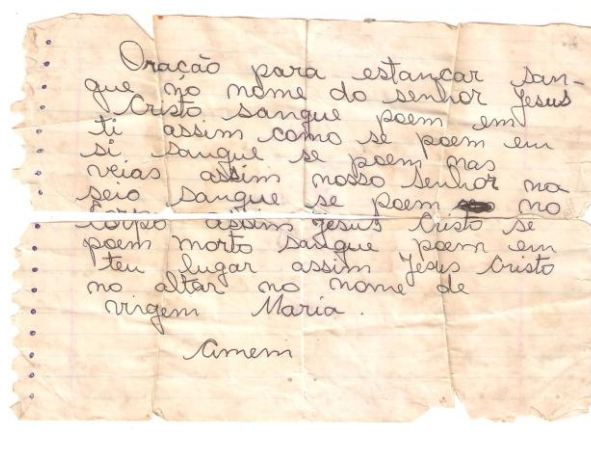 Oração para estancar san-
gue no nome do senhor Jesus
Cristo sangue poem em
ti assim como se poem em
si sangue se poem nas
veias assim nosso senhor na
seio sangue se poem no
corpo assim Jesus Cristo se
poem morto sangue poem em
teu lugar assim Jesus Cristo
no altar no nome de
virgem Maria.
Amem